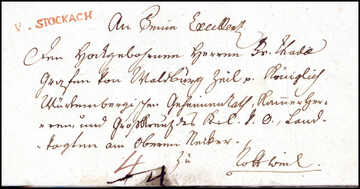 V. STOCKACH
An Seine Excellenz
Den Hochgebohrnen Herren
Grafen von Waldburg Zeil p. Königlich
Würtembergischen Geheimen Rath, Kammerher-
ren, und Großkreuz des Land-
vogten am Oberen Neckar
4 zu
Rottweil